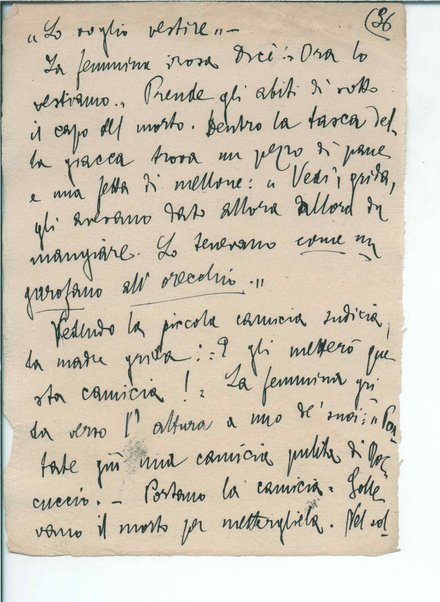 (36
"Lo voglio vestire" –
La femmina irosa dice: "Ora lo
vestiamo." Prende gli abiti di sotto
il capo del morto. Dentro la tasca del-
la giacca trova un pezzo di pane
e una fetta di mellone: "Vedi, grida,
gli avevano dato allora allora da
mangiare. Lo tenevano come un
garofano all'orecchio."
Vedendo la piccola camicia sudicia,
la madre grida: "E gli metterò que-
sta camicia!" La femmina gri-
da verso l'altura a uno de' suoi: "Por-
tate giù una camicia pulita di
cuccio. – Portano la camicia. Solle-
vano il morto per mettergliela. Nel sol-